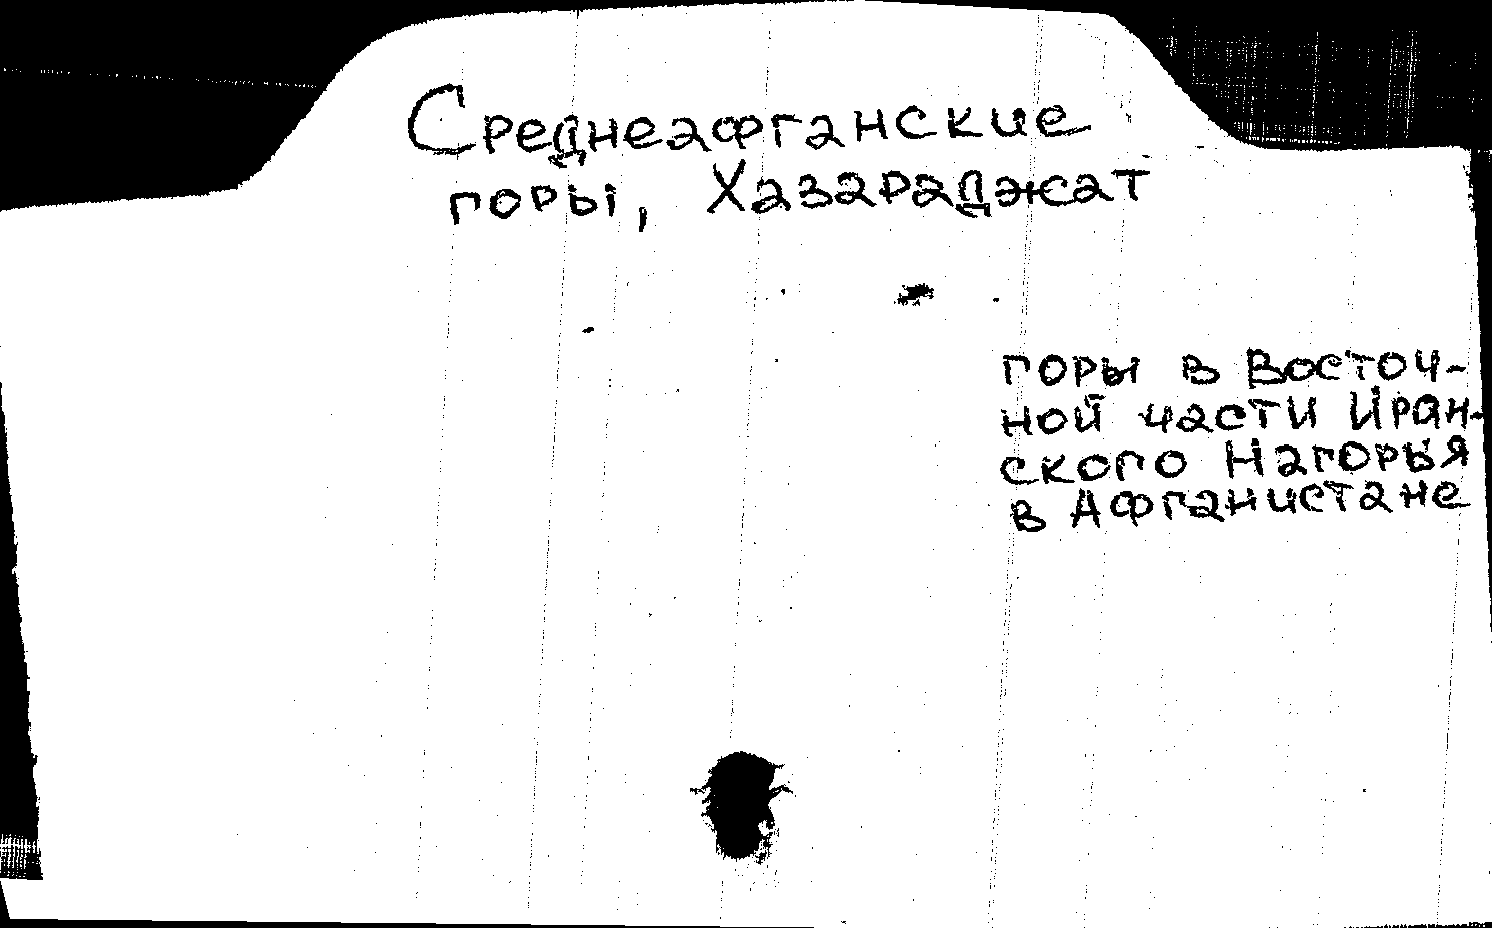 Среднеафганские
горы, Хазараджат
горы в Восточ-
ной части Иран-
ского Нагорья
в Афганистане